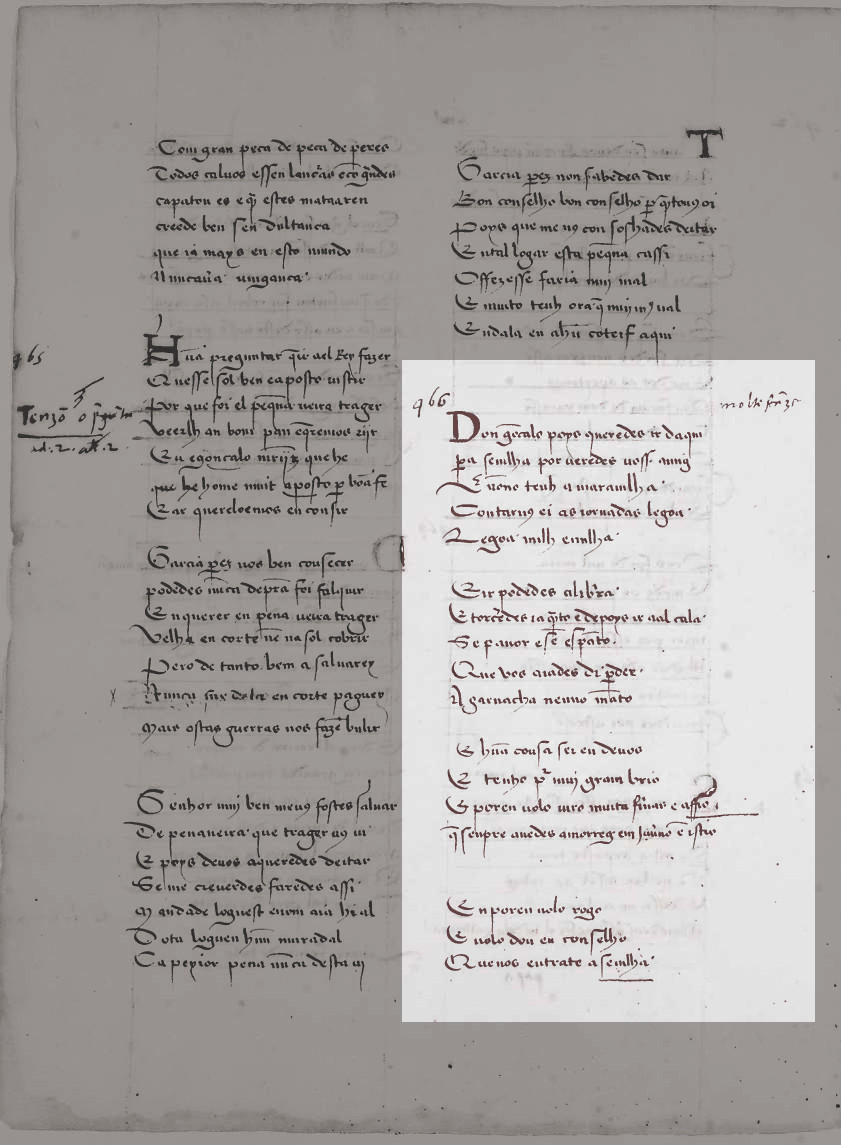 Com gran peca de peca de peres
Todos caluos essen lancas eco gndes
capatou es e q̄ estes mataaren
creede ben sen dultanca
que ia mays en esto mundo
Nuncau'a uinganca
465
Hũa preguntar q̄ir ael Rey fazer
Quesse sol ben eaposto uistir
Por que foi el peq̄na ueira trager
Veerlh an bom pan eq̄remos
Eu egōncalo que he
que he home muit aposto p bōa fe
Ear quereloemos en consir
Tenzō
Garcia p̱ez uos ben consecer
podedes nūca depra foi falquir
En querer en pena ueira trager
Velha en corte ne na sol cobrir
Pero de tanto bem a saluarey
Nunca en corte paguey
Mais ostas guerras nos fazē bulir
Senhor muj ben meuꝯ fostes saluar
De penaueira que trager uꝯ ui
E poys deuos aqueredes deitar
Se me creuerdes faredes assi
Mandade loguest euom aia hi al
Dota loguen hūu muradal
Ca peyor pena nūca desta uj
T
Garcia p̱ez non sabedes dar
Bon conselho bon conselho p q̄touꝯ oi
Poys que me uꝯ con soshades deitar
En tal logar esta peq̄na cassi
Offezesse faria muj mal
E muito tenh ora q̄ muj inꝯ ual
Endala en ahūu coteif aqui
466
Don gōcalo poys queredes ir daqui
p̱a senilha por ueredes uoss amig
E nōno tenh a marauilha
Contaruꝯ ei as iornadas legoa
Legoa milh emilha
E ir podedes a libra
E torcedes ia q̄to e depoys ir aal cala
Se pauor e sē espāto
Que uos aiades di p̱der
A garnacha neuno māto
E hūa cousa sei en deuos
E tenho p' muj gram brio
E poren uolo iuro muita
q̄ senpre auedes amorreg em
En poren uolo rogo
E uolo dou en conselho
Que uos entrate a senilha